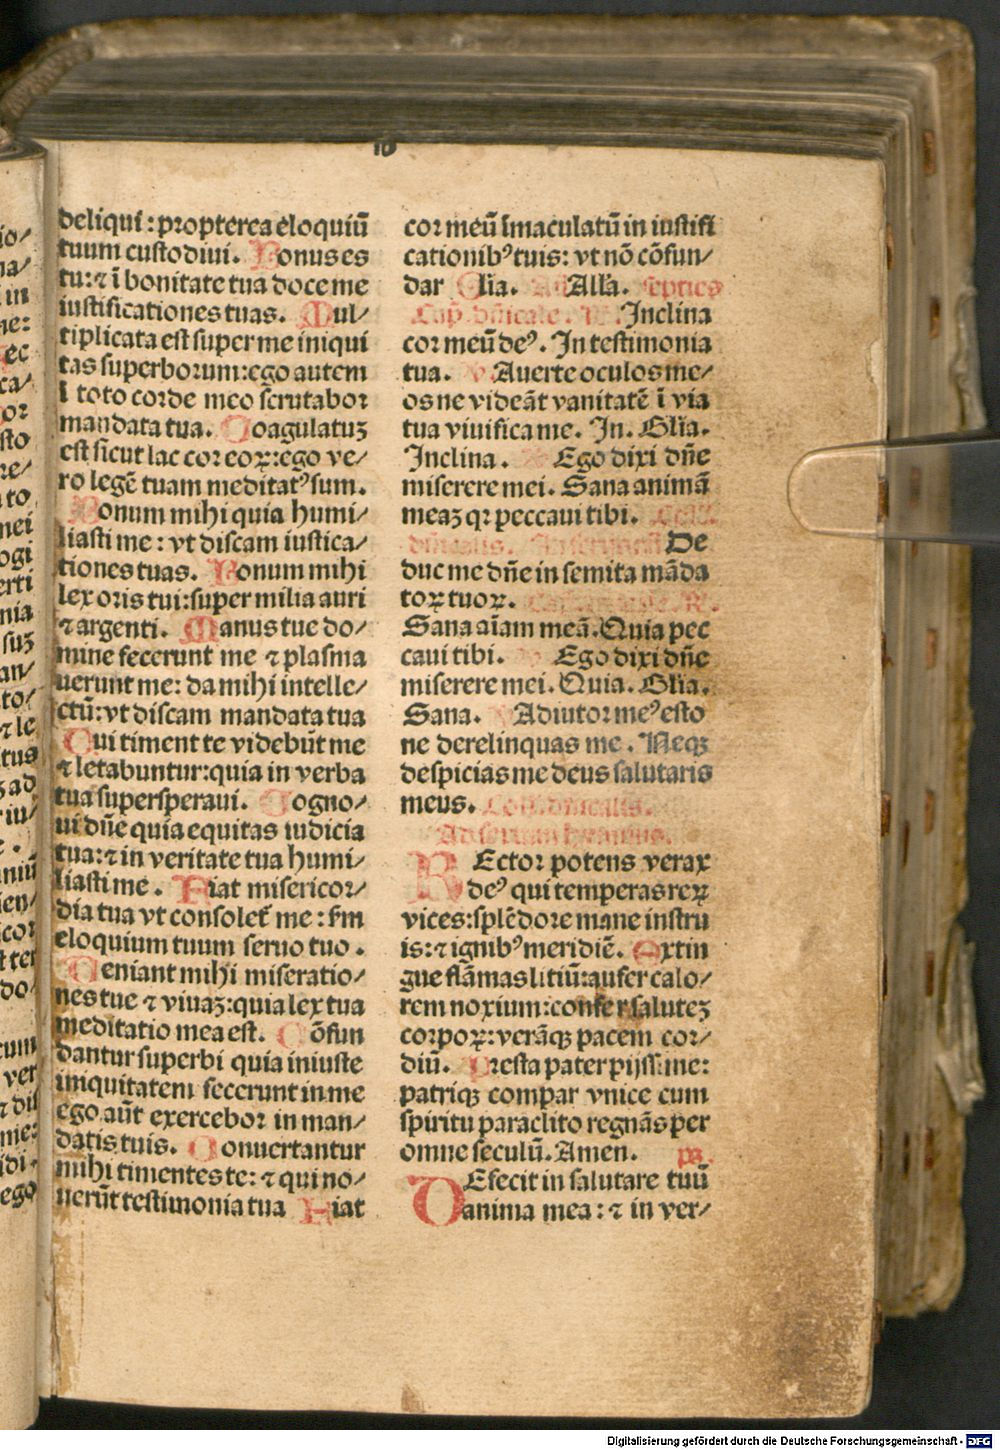 deliqui: propterea eloquiū
tuum custodiui. Bonus es
tu: ⁊ ī bonitate tua doce me
iustificationes tuas. Mul/
tiplicata est super me iniqui
tas superborum: ego autem
ī toto corde meo scrutabor
mandata tua. Coagulatuʒ
est sicut lac cor eoꝝ: ego ve/
ro legē tuam meditatꝰ sum.
Bonum mihi quia humi/
liasti me: vt discam iustica/
tiones tuas. Bonum mihi
lex oris tui: super milia auri
⁊ argenti. Manus tue do/
mine fecerunt me ⁊ plasma
uerunt me: da mihi intelle/
ctū: vt discam mandata tua
Qui timent te videbūt me
⁊ letabuntur: quia in verba
tua supersperaui. Cogno/
ui dn̄e quia equitas iudicia
tua: ⁊ in veritate tua humi/
liasti me. Fiat misericor/
dia tua vt consolet̄ me: fm
eloquium tuum seruo tuo.
Ueniant mihi miseratio/
nes tue ⁊ viuaʒ: quia lex tua
meditatio mea est. Cōfun
dantur superbi quia iniuste
iniquitatem fecerunt in me
ego aūt exercebor in man/
datis tuis. Conuertantur
mihi timentes te: ⁊ qui no/
uerūt testimonia tua Fiat
cor meū īmaculatū in iustifi
cationibꝰ tuis: vt nō cōfun/
dar Glīa. Añ Allā. septies
Cap. dn̄icale. R. Inclina
cor meū deꝰ. In testimonia
tua. V Auerte oculos me/
os ne videāt vanitatē ī via
tua viuifica me. In. Glīa.
Inclina. V Ego dixi dn̄e
miserere mei. Sana animā
meaʒ qꝛ peccaui tibi. Coll.
dn̄icalis. De
duc me dn̄e in semita māda
toꝝ tuoꝝ. R.
Sana aīam meā. Quia pec
caui tibi. Ego dixi dn̄e
miserere mei. Quia. Glīa.
Sana. V Adiutor meꝰ esto
ne derelinquas me. Neqʒ
despicias me deus salutaris
meus. Coll. dn̄icalis.
Ad sextam hymnus.
REctor potens verax
deꝰ qui temperas reꝝ
vices: splēdore mane instru
is: ⁊ ignibꝰ meridiē. Extin
gue flāmas litiū: aufer calo/
rem noxium: confer saluteʒ
corpoꝝ: verāqʒ pacem cor/
diū. Presta pater pijssime:
patriqʒ compar vnice cum
spiritu paraclito regnās per
omne seculū. Amen. ps.
DEfecit in salutare tuū
anima mea: ⁊ in ver/
Digitalisierung gefördert durch die Deutsche Forschungsgemeinschaft - DFG